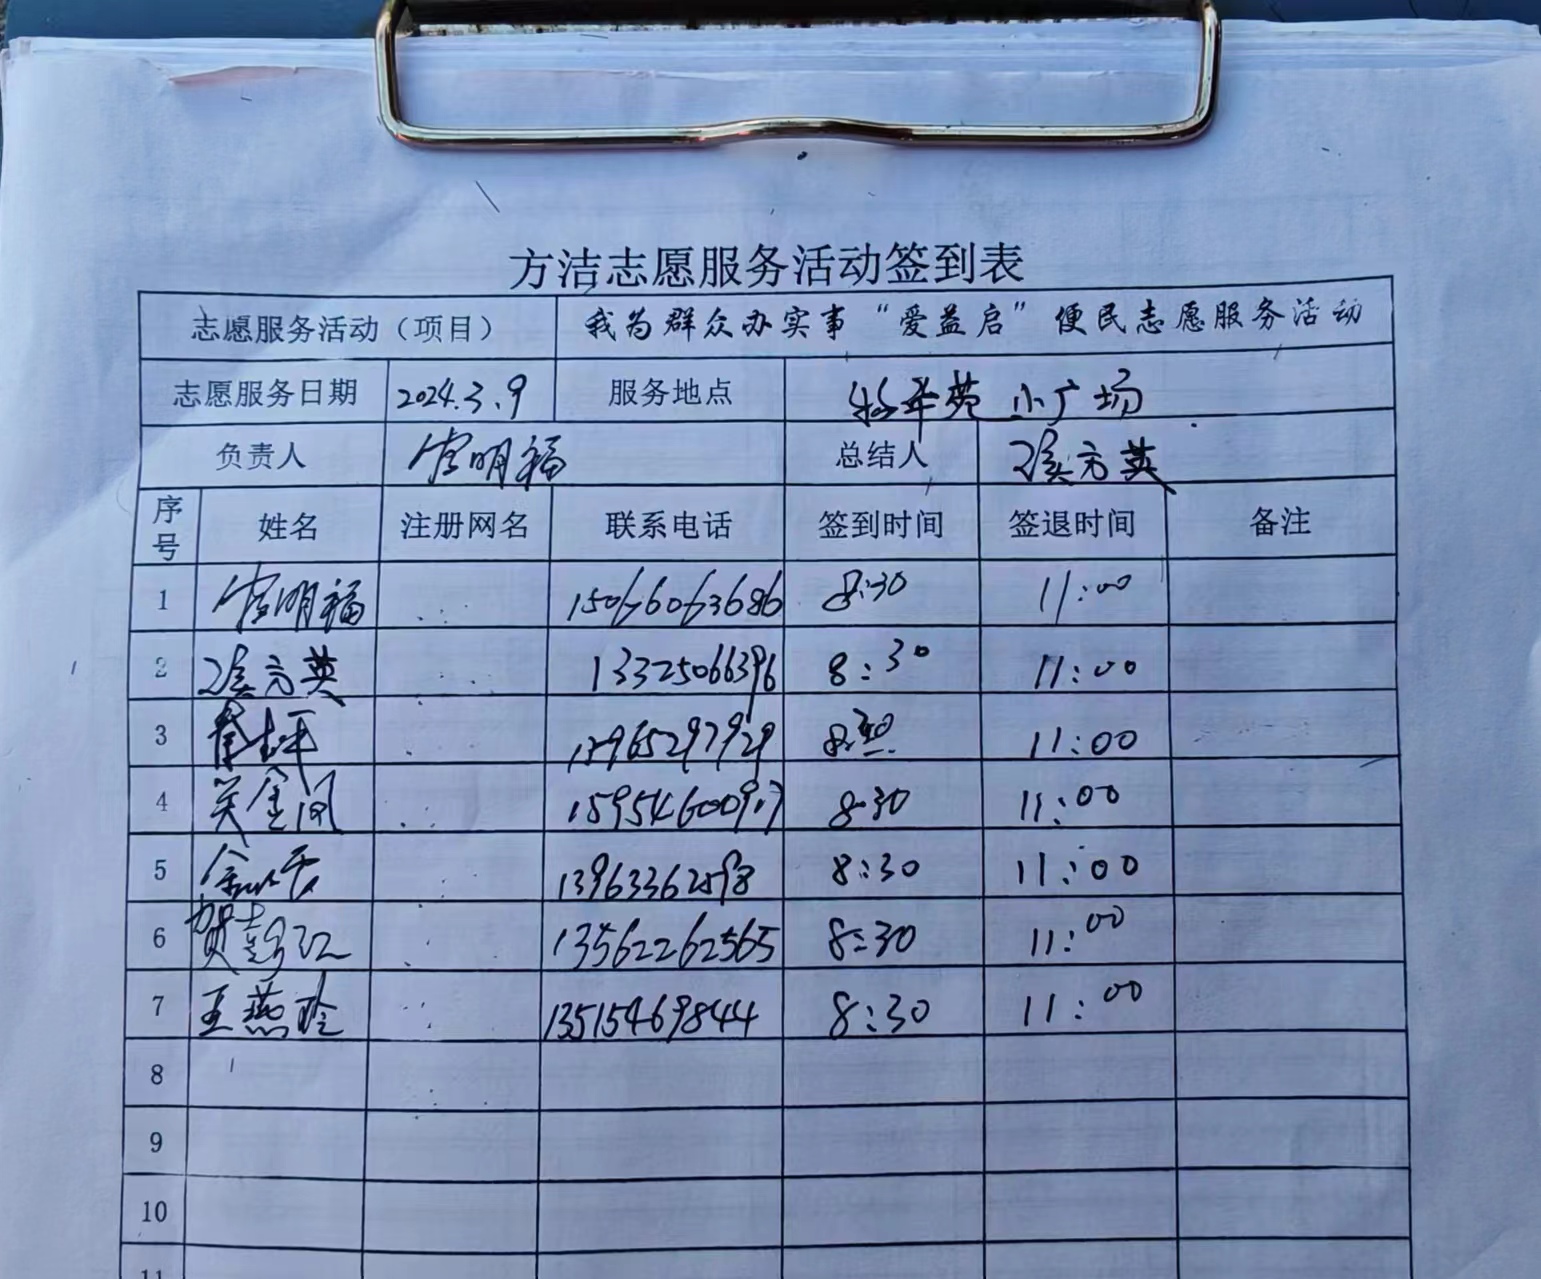 方洁志愿服务活动签到表
志愿服务活动（项目） 我为群众办实事“爱益启”便民志愿服务活动
志愿服务日期 2024.3.9 服务地点 苑小广场
负责人 明福 总结人 方英
序号 姓名 注册网名 联系电话 签到时间 签退时间 备注
1 明福 15066063686 8:30 11:00
2 方英 13325066396 8:30 11:00
3 8:30 11:00
4 金凤 8:30 11:00
5 8:30 11:00
6 贺彭江 13562262565 8:30 11:00
7 王燕玲 13515469844 8:30 11:00
8
9
10
11